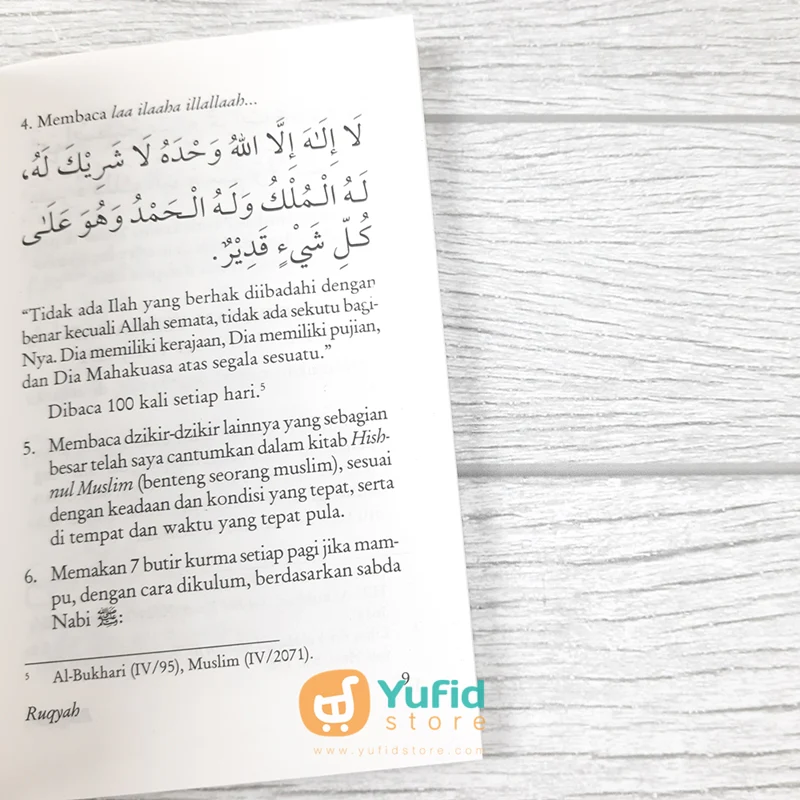 4. Membaca laa ilaaha illallaah...
لَا إِلَـٰهَ إِلَّا اللهُ وَحْدَهُ لَا شَرِيْكَ لَهُ،
لَهُ الْمُلْكُ وَلَهُ الْحَمْدُ وَهُوَ عَلَىٰ
كُلِّ شَيْءٍ قَدِيْرٌ.
“Tidak ada Ilah yang berhak diibadahi dengan
benar kecuali Allah semata, tidak ada sekutu bagi-
Nya. Dia memiliki kerajaan, Dia memiliki pujian,
dan Dia Mahakuasa atas segala sesuatu.”
Dibaca 100 kali setiap hari.⁵
5. Membaca dzikir-dzikir lainnya yang sebagian
besar telah saya cantumkan dalam kitab Hish-
nul Muslim (benteng seorang muslim), sesuai
dengan keadaan dan kondisi yang tepat, serta
di tempat dan waktu yang tepat pula.
6. Memakan 7 butir kurma setiap pagi jika mam-
pu, dengan cara dikulum, berdasarkan sabda
Nabi ﷺ:
⁵ Al-Bukhari (IV/95), Muslim (IV/2071).
Ruqyah
9
Yufid
store
www.yufidstore.com